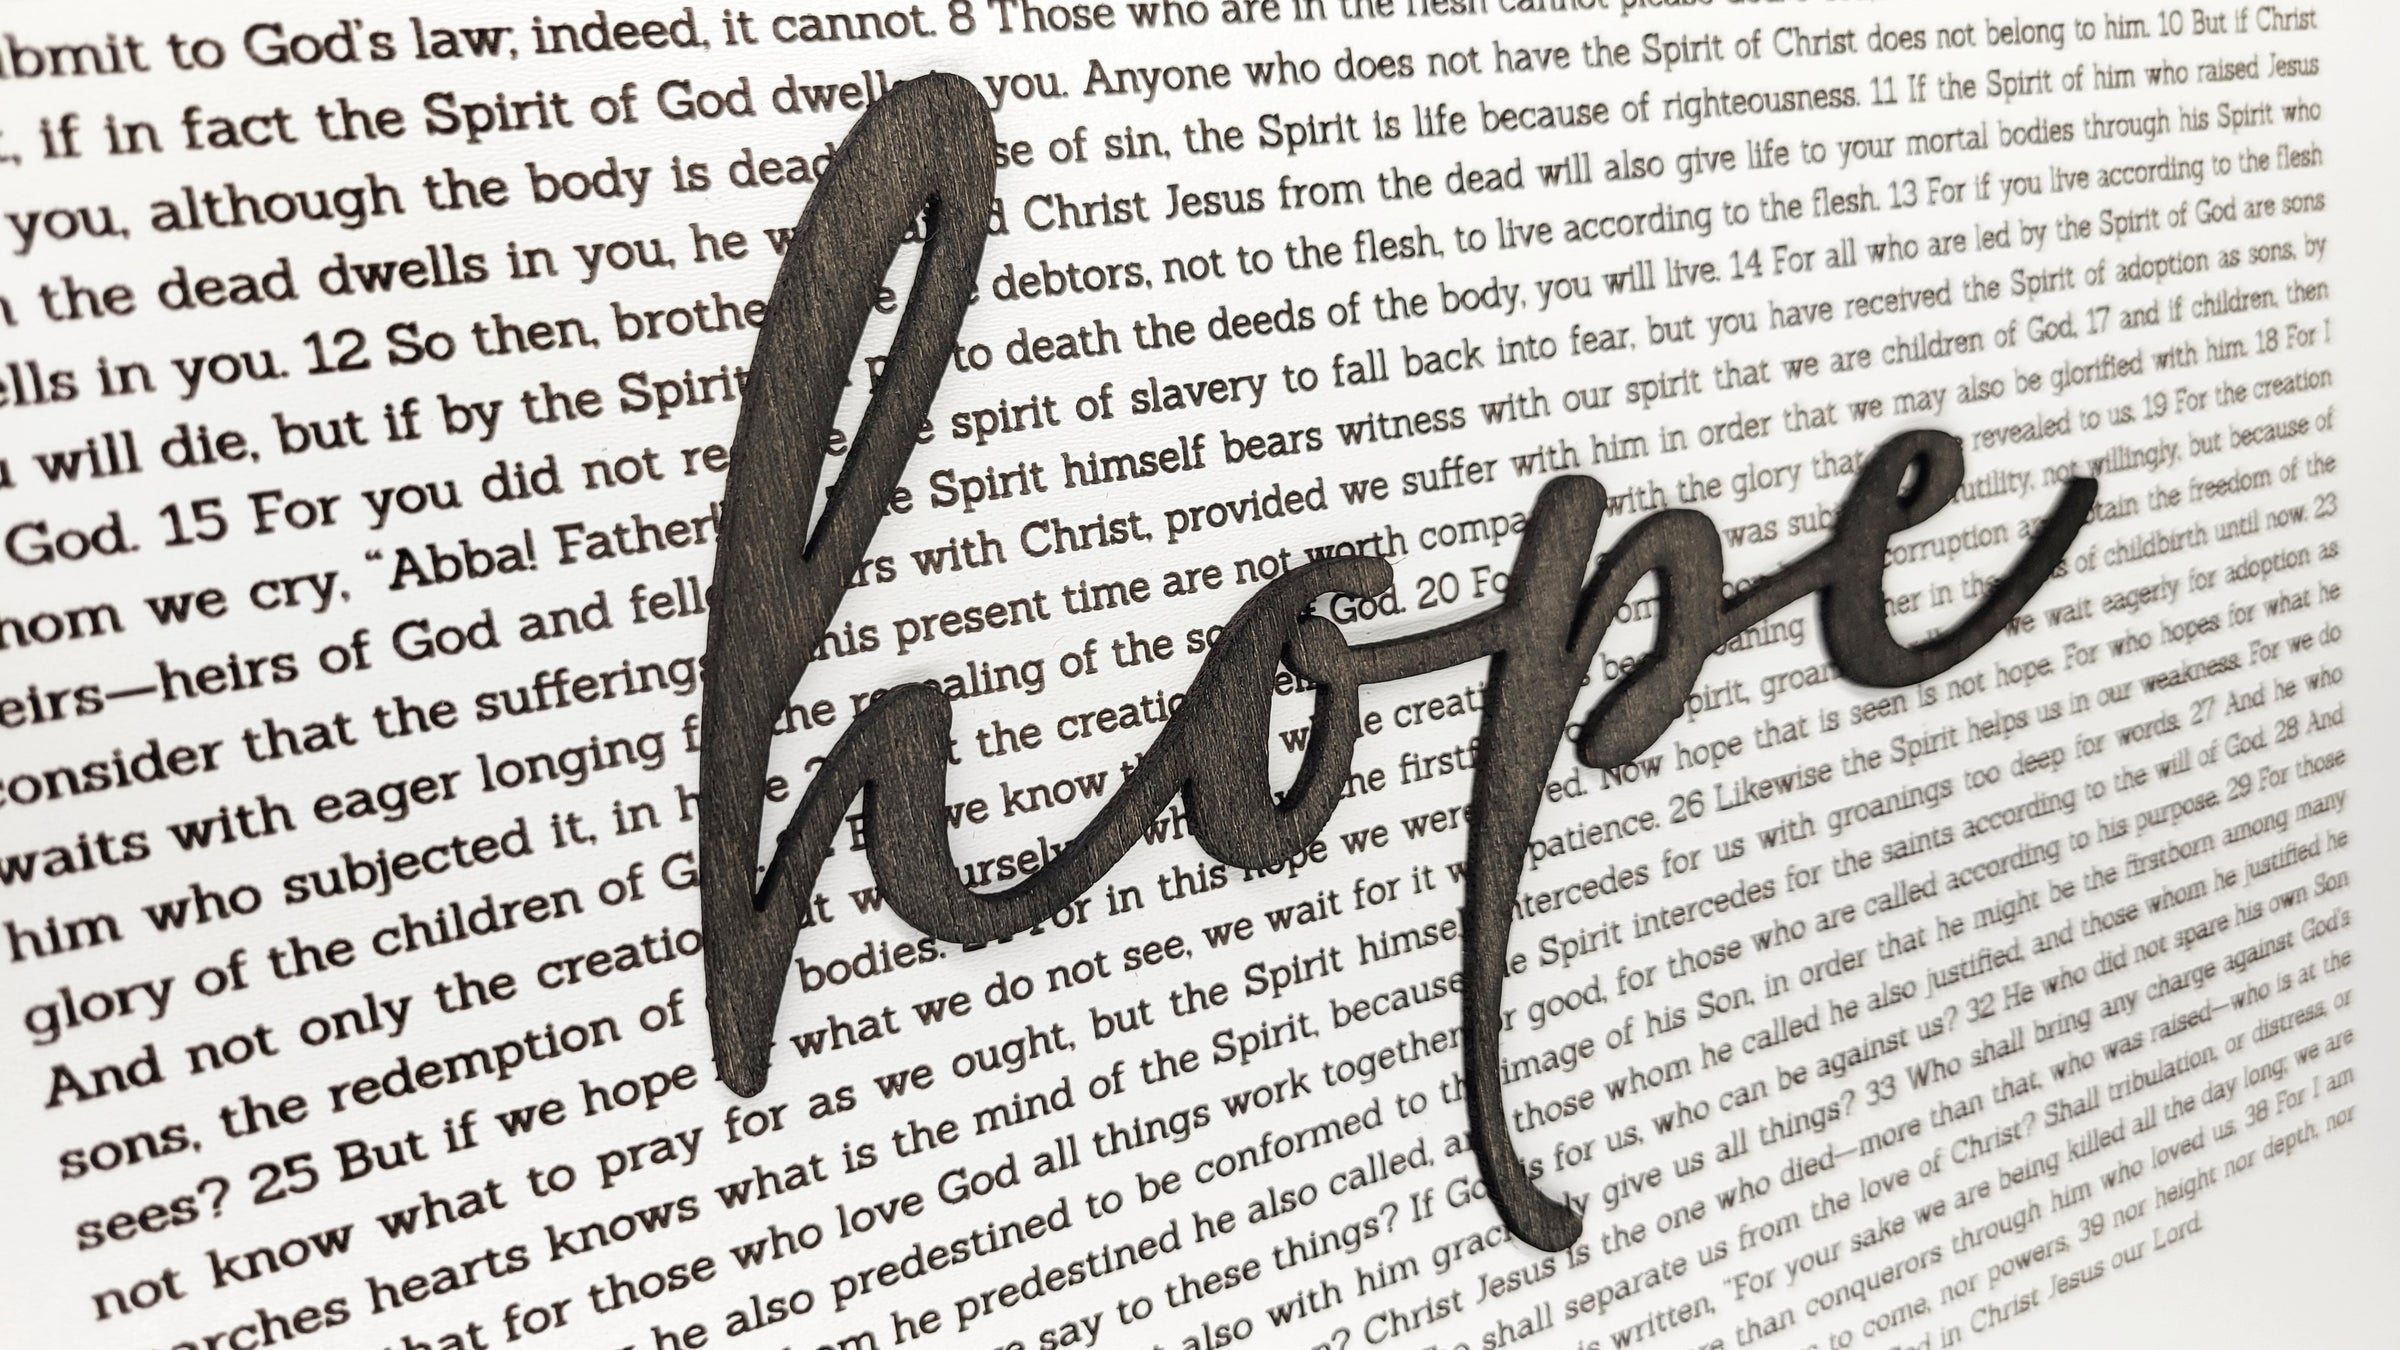 bmit to God's law; indeed, it cannot. 8 Those who are in the flesh cannot please God.
if in fact the Spirit of God dwells you. Anyone who does not have the Spirit of Christ does not belong to him. 10 But if Christ
you, although the body is dead se of sin, the Spirit is life because of righteousness. 11 If the Spirit of him who raised Jesus
the dead dwells in you, he w d Christ Jesus from the dead will also give life to your mortal bodies through his Spirit who
ells in you. 12 So then, brothe e debtors, not to the flesh, to live according to the flesh. 13 For if you live according to the flesh
will die, but if by the Spirit p to death the deeds of the body, you will live. 14 For all who are led by the Spirit of God are sons
God. 15 For you did not re e e spirit of slavery to fall back into fear, but you have received the Spirit of adoption as sons, by
hom we cry, “Abba! Father! e Spirit himself bears witness with our spirit that we are children of God, 17 and if children, then
eirs—heirs of God and fell rs with Christ, provided we suffer with him in order that we may also be glorified with him. 18 For I
consider that the sufferings his present time are not worth compa with the glory that revealed to us. 19 For the creation
waits with eager longing f the re ealing of the so God. 20 Fo was sub utility, not willingly, but because of
him who subjected it, in h e 2 t the creatio om corruption a tain the freedom of the
glory of the children of G we know th w le creati be aning her in the s of childbirth until now. 23
And not only the creatio t w ursel wh he firstf pirit, groan we wait eagerly for adoption as
sons, the redemption of bodies. For in this hope we were ed. Now hope that is seen is not hope. For who hopes for what he
sees? 25 But if we hope what we do not see, we wait for it w patience. 26 Likewise the Spirit helps us in our weakness. For we do
not know what to pray for as we ought, but the Spirit himsel ntercedes for us with groanings too deep for words. 27 And he who
arches hearts knows what is the mind of the Spirit, because e Spirit intercedes for the saints according to the will of God. 28 And
hat for those who love God all things work together r good, for those who are called according to his purpose. 29 For those
he also predestined to be conformed to th image of his Son, in order that he might be the firstborn among many
om he predestined he also called, a those whom he called he also justified, and those whom he justified he
say to these things? If Go is for us, who can be against us? 32 He who did not spare his own Son
also with him graci ly give us all things? 33 Who shall bring any charge against God's
n? Christ Jesus is the one who died—more than that, who was raised—who is at the
shall separate us from the love of Christ? Shall tribulation, or distress, or
is written, “For your sake we are being killed all the day long; we are
re than conquerors through him who loved us. 38 For I am
to come, nor powers, 39 nor height nor depth, nor
in Christ Jesus our Lord.
hope